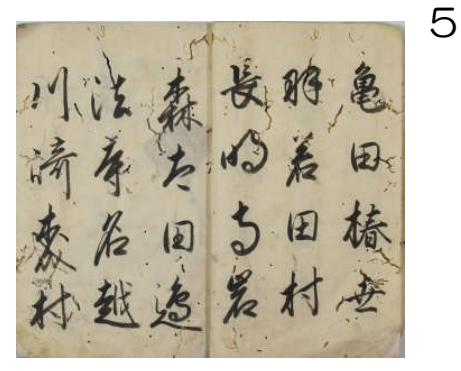 5
亀田椿世
羽若田村
長明寺岩
森太田邊
法寺名越
川崎村